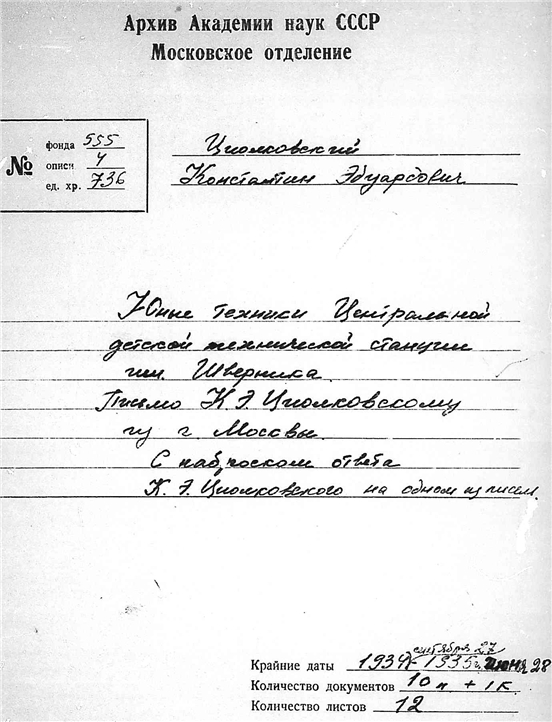 Архив Академии наук СССР
Московское отделение
№
фонда 555
описи 4
ед. хр. 736
Циолковский
Константин Эдуардович
Юные техники Центральной
детской технической станции
им. Шверника.
Письмо К.Э. Циолковскому
из г. Москвы.
С наброском ответа
К.Э. Циолковского на одном из писем.
сентября 27
Крайние даты 1934 - 1935 июня 28
Количество документов 10 п + 1 к.
Количество листов 12